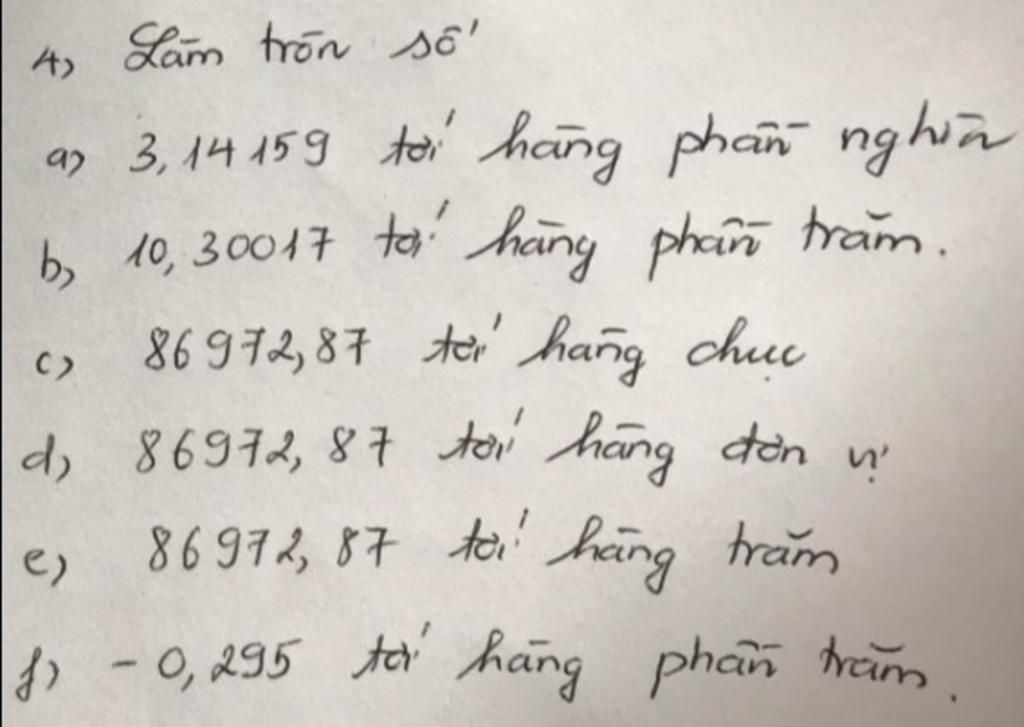 1) Làm tròn số
a) 3,14159 tới hàng phần nghìn
b) 10,30017 tới hàng phần trăm.
c) 86972,87 tới hàng chục
d) 86972,87 tới hàng đơn vị
e) 86972,87 tới hàng trăm
f) -0,295 tới hàng phần trăm.